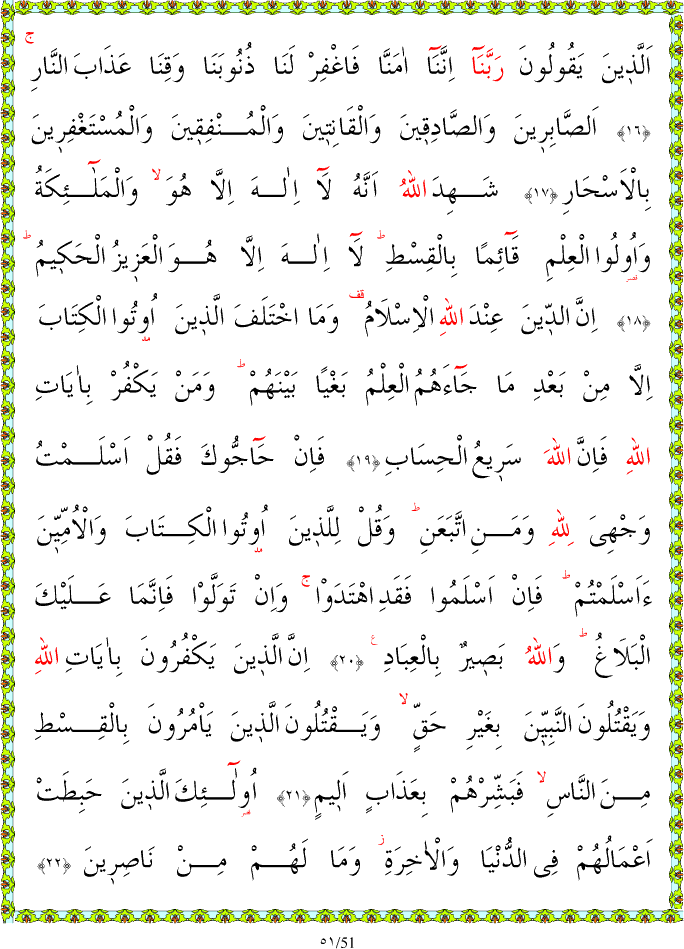 اَلَّذ۪ينَ يَقُولُونَ رَبَّنَٓا اِنَّنَٓا اٰمَنَّا فَاغْفِرْ لَنَا ذُنُوبَنَا وَقِنَا عَذَابَ النَّارِۚ
﴿١٦﴾ اَلصَّابِر۪ينَ وَالصَّادِق۪ينَ وَالْقَانِت۪ينَ وَالْمُنْفِق۪ينَ وَالْمُسْتَغْفِر۪ينَ
بِالْاَسْحَارِ ﴿١٧﴾ شَهِدَ اللّٰهُ اَنَّهُ لَٓا اِلٰهَ اِلَّا هُوَۙ وَالْمَلٰٓئِكَةُ
وَاُو۬لُوا الْعِلْمِ قَٓائِمًا بِالْقِسْطِۜ لَٓا اِلٰهَ اِلَّا هُوَ الْعَز۪يزُ الْحَك۪يمُۜ
﴿١٨﴾ اِنَّ الدّ۪ينَ عِنْدَ اللّٰهِ الْاِسْلَامُ قف وَمَا اخْتَلَفَ الَّذ۪ينَ اُو۫تُوا الْكِتَابَ
اِلَّا مِنْ بَعْدِ مَا جَٓاءَهُمُ الْعِلْمُ بَغْيًا بَيْنَهُمْۜ وَمَنْ يَكْفُرْ بِاٰيَاتِ
اللّٰهِ فَاِنَّ اللّٰهَ سَر۪يعُ الْحِسَابِ ﴿١٩﴾ فَاِنْ حَٓاجُّوكَ فَقُلْ اَسْلَمْتُ
وَجْهِىَ لِلّٰهِ وَمَنِ اتَّبَعَنِۜ وَقُلْ لِلَّذ۪ينَ اُو۫تُوا الْكِتَابَ وَالْاُمِّيّ۪نَ
ءَاَسْلَمْتُمْۜ فَاِنْ اَسْلَمُوا فَقَدِ اهْتَدَوْاۚ وَاِنْ تَوَلَّوْا فَاِنَّمَا عَلَيْكَ
الْبَلَاغُۜ وَاللّٰهُ بَص۪يرٌ بِالْعِبَادِ ع ﴿٢٠﴾ اِنَّ الَّذ۪ينَ يَكْفُرُونَ بِاٰيَاتِ اللّٰهِ
وَيَقْتُلُونَ النَّبِيّ۪نَ بِغَيْرِ حَقٍّۙ وَيَقْتُلُونَ الَّذ۪ينَ يَاْمُرُونَ بِالْقِسْطِ
مِنَ النَّاسِۙ فَبَشِّرْهُمْ بِعَذَابٍ اَل۪يمٍ ﴿٢١﴾ اُو۬لٰٓئِكَ الَّذ۪ينَ حَبِطَتْ
اَعْمَالُهُمْ فِى الدُّنْيَا وَالْاٰخِرَةِ ز وَمَا لَهُمْ مِنْ نَاصِر۪ينَ ﴿٢٢﴾
٥١/51